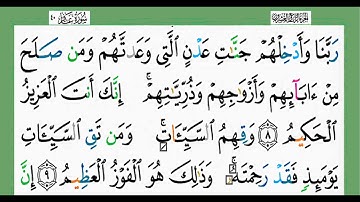 سورة غافر ٤٠ الجزء الرابع والعشرون
رَبَّنَا وَأَدْخِلْهُمْ جَنَّٰتِ عَدْنٍ ٱلَّتِى وَعَدتَّهُمْ وَمَن صَلَحَ
مِنْ ءَابَآئِهِمْ وَأَزْوَٰجِهِمْ وَذُرِّيَّٰتِهِمْ ۚ إِنَّكَ أَنتَ ٱلْعَزِيزُ
ٱلْحَكِيمُ ٨ وَقِهِمُ ٱلسَّيِّـَٔاتِ ۚ وَمَن تَقِ ٱلسَّيِّـَٔاتِ
يَوْمَئِذٍ فَقَدْ رَحِمْتَهُۥ ۚ وَذَٰلِكَ هُوَ ٱلْفَوْزُ ٱلْعَظِيمُ ٩ إِنَّ